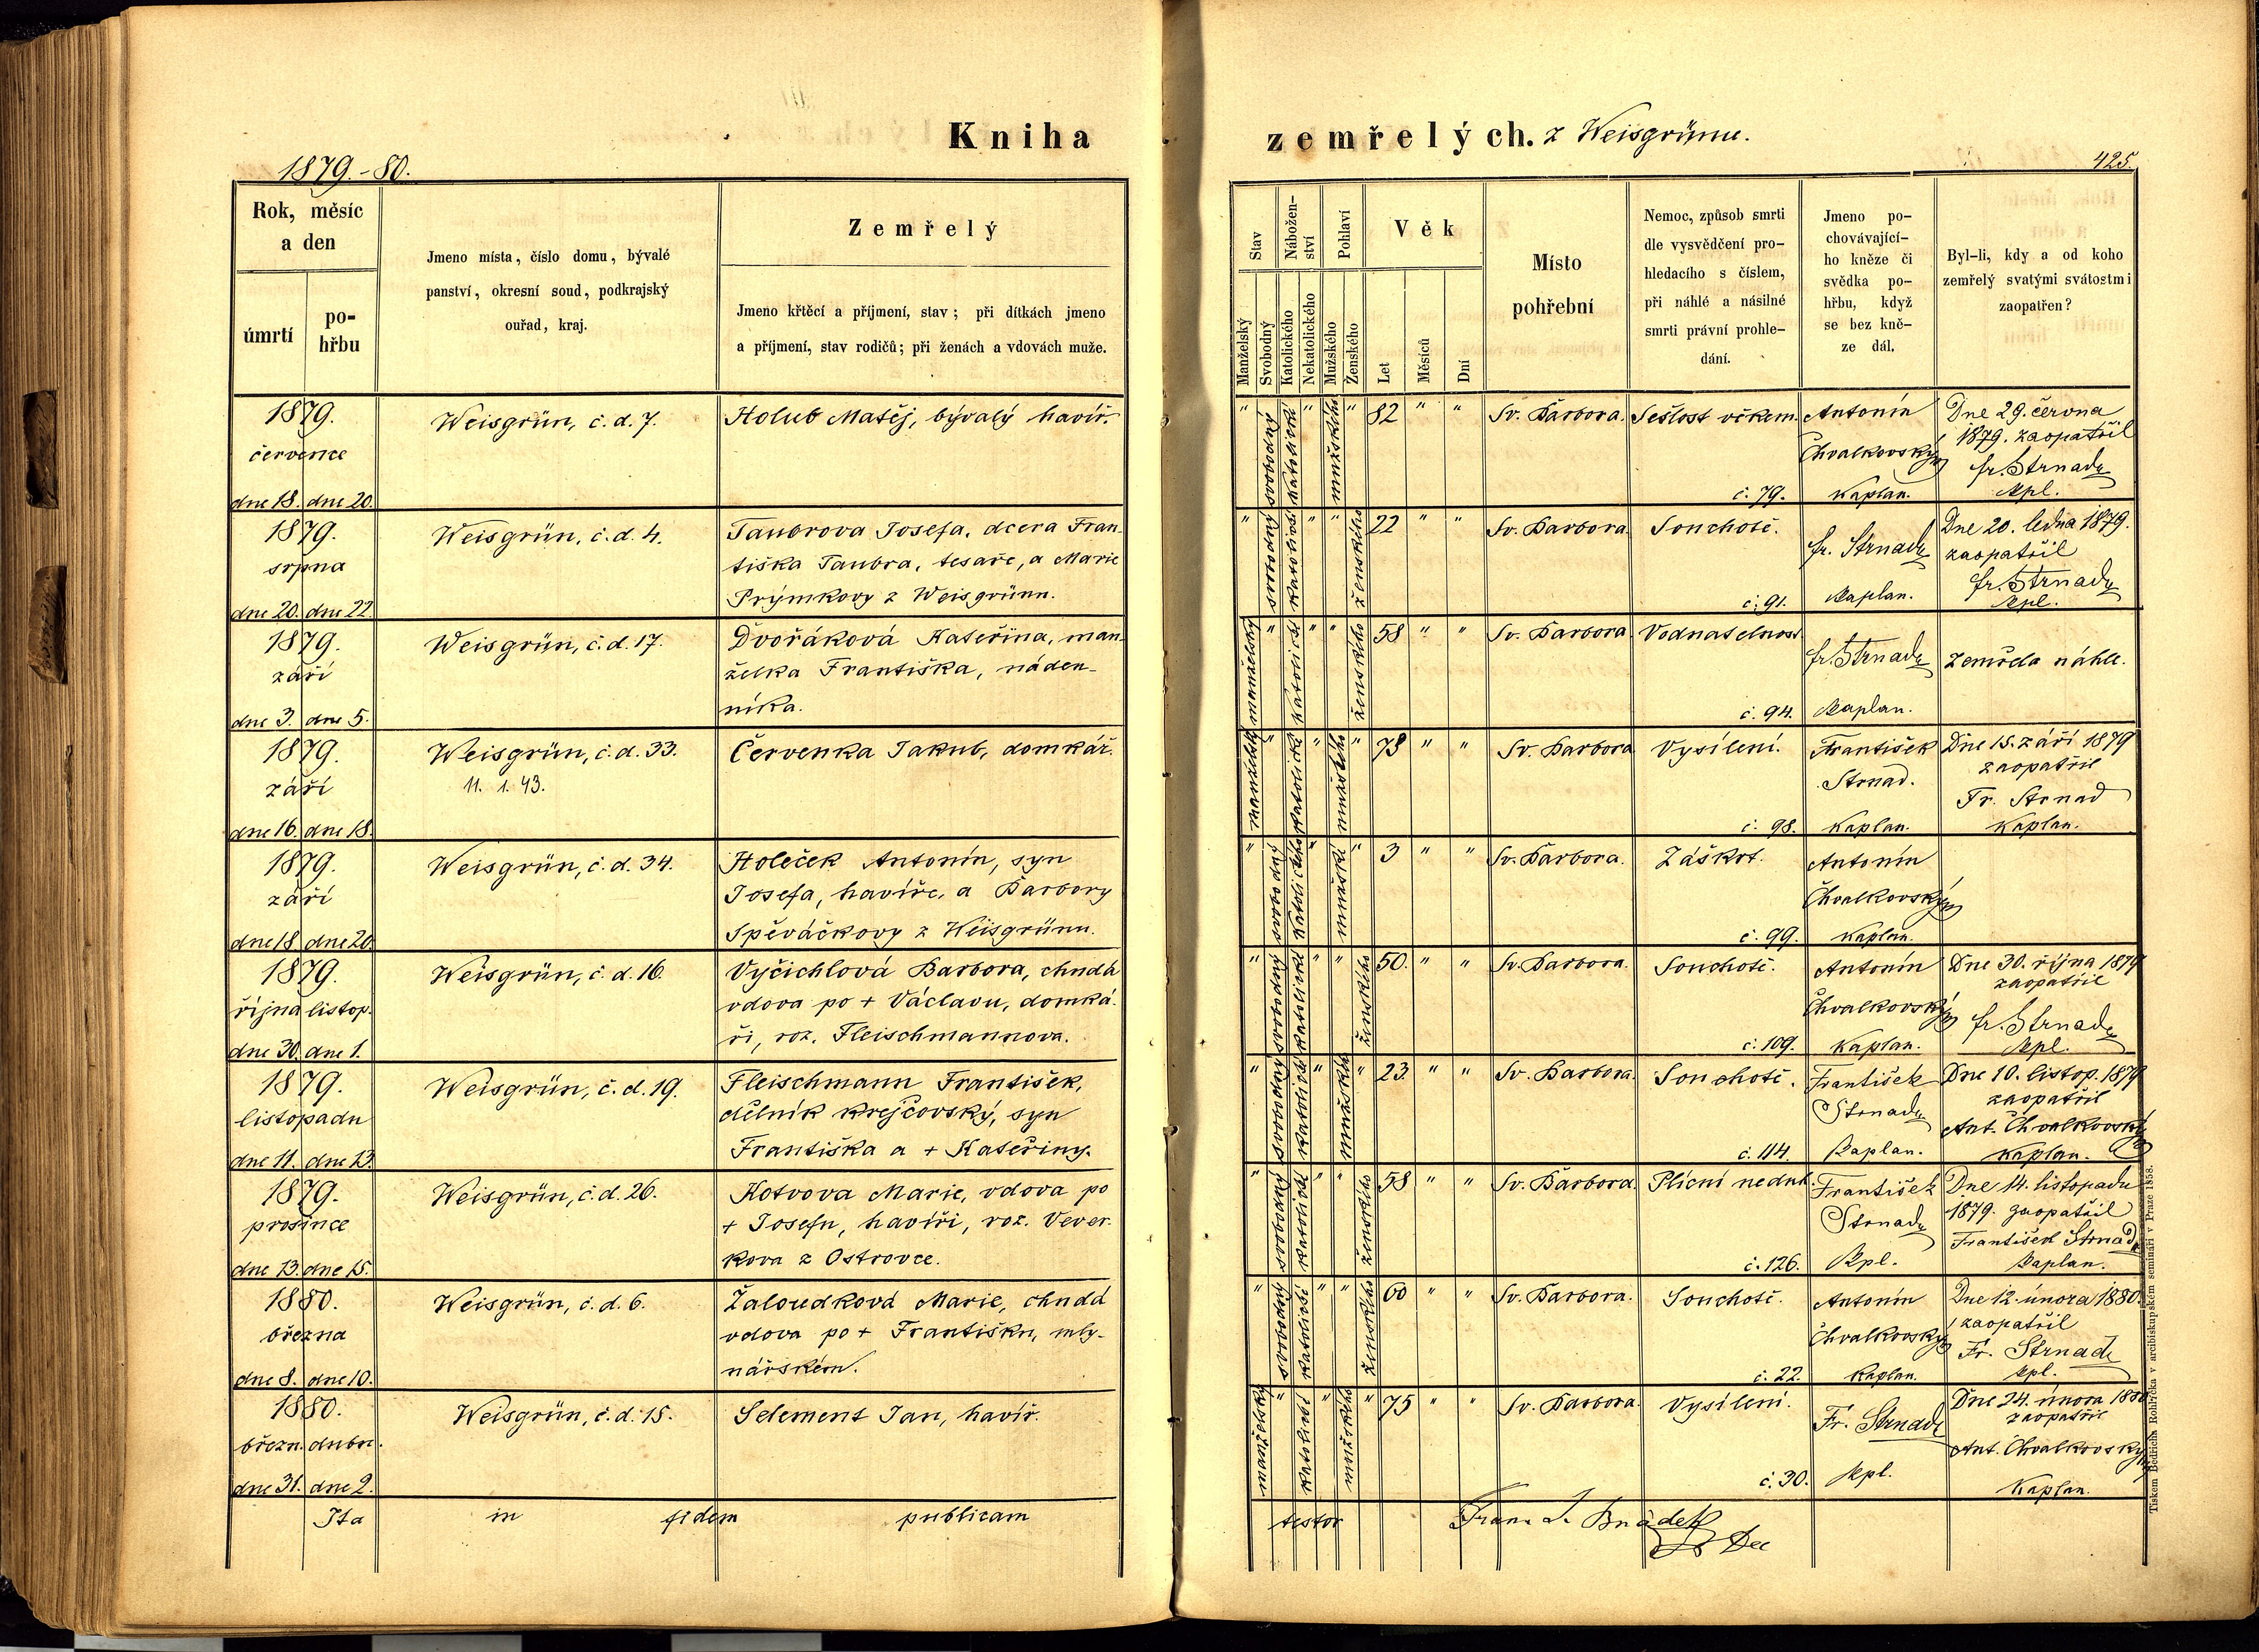 Kniha zemřelých. z Weisgrünu.
1879.-80.
425.
Rok, měsíc
a den
úmrtí
po-
hřbu
Jmeno místa, číslo domu, bývalé
panství, okresní soud, podkrajský
ouřad, kraj.
Zemřelý
Jmeno křtěcí a příjmení, stav; při dítkách jmeno
a příjmení, stav rodičů; při ženách a vdovách muže.
Stav
Manželský
Svobodný
Nábožen-
ství
Katolického
Nekatolického
Pohlaví
Mužského
Ženského
Věk
Let
Měsíců
Dní
Místo
pohřební
Nemoc, způsob smrti
dle vysvědčení pro-
hledacího s číslem,
při náhlé a násilné
smrti právní prohle-
dání.
Jmeno po-
chovávající-
ho kněze či
svědka po-
hřbu, když
se bez kně-
ze dál.
Byl-li, kdy a od koho
zemřelý svatými svátostmi
zaopatřen?
1879.
července
dne 18. dne 20.
Weisgrün, č. d. 7.
Holub Matěj, bývalý havíř.
" svobodný katolické " mužského " 82 " "
Sv. Barbora.
Sešlost věkem.
č. 79.
Antonín
Chvalkovský
Kaplan.
Dne 29. června
1879. zaopatřil
fr. Strnad
kpl.
1879.
srpna
dne 20. dne 22.
Weisgrün, č. d. 4.
Taubrova Josefa, dcera Fran-
tiška Taubra, tesaře, a Marie
Prýmkovy z Weisgrünu.
" svobodný katolické " " ženského 22 " "
Sv. Barbora.
Souchotě.
č. 91.
fr. Strnad
Kaplan.
Dne 20. ledna 1879.
zaopatřil
fr. Strnad
kpl.
1879.
září
dne 3. dne 5.
Weisgrün, č. d. 17.
Dvořáková Kateřina, man-
želka Františka, náden-
níka.
manželský " katolické " " ženského 58 " "
Sv. Barbora
Vodnatelnost
č. 94.
fr. Strnad
Kaplan.
Zemřela náhle.
1879.
září
dne 16. dne 18.
Weisgrün, č. d. 33.
11. 1. 43.
Červenka Jakub, domkář.
manželský " katolické " mužského " 78 " "
Sv. Barbora
Vysílení.
č. 98.
František
Strnad.
Kaplan.
Dne 15. září 1879
zaopatřil
Fr. Strnad
Kaplan.
1879.
září
dne 18. dne 20.
Weisgrün, č. d. 34.
Holeček Antonín, syn
Josefa, havíře, a Barbory
Spěváčkovy z Weisgrünu.
" svobodný katolického " mužské " 3 " "
Sv. Barbora.
Záškrt.
č. 99.
Antonín
Chvalkovský
Kaplan.
1879.
října listop.
dne 30. dne 1.
Weisgrün, č. d. 16.
Vyčichlová Barbora, chudá
vdova po + Václavu, domká-
ři, roz. Fleischmannova.
" svobodný katolické " " ženského 50. " "
Sv. Barbora.
Souchotě.
č. 109.
Antonín
Chvalkovský
Kaplan.
Dne 30. října 1879
zaopatřil
fr. Strnad
kpl.
1879.
listopadu
dne 11. dne 13.
Weisgrün, č. d. 19.
Fleischmann František,
dělník krejčovský, syn
Františka a + Kateřiny.
" svobodný katolické " mužského " 23. " "
Sv. Barbora.
Souchotě.
č. 114.
František
Strnad
Kaplan.
Dne 10. listop. 1879
zaopatřil
Ant. Chvalkovský
Kaplan.
1879.
prosince
dne 13. dne 15.
Weisgrün, č. d. 26.
Kotvova Marie, vdova po
+ Josefu, havíři, roz. Vever-
kova z Ostrovce.
" svobodný katolické " " ženského 58 " "
Sv. Barbora.
Plícní neduh.
č. 126.
František
Strnad
kpl.
Dne 14. listopadu
1879. zaopatřil
František Strnad
Kaplan.
1880.
března
dne 8. dne 10.
Weisgrün, č. d. 6.
Žaloudková Marie, chudá
vdova po + Františku, mly-
nářském.
" svobodný katolické " " ženského 60 " "
Sv. Barbora.
Souchotě.
č. 22.
Antonín
Chvalkovský
Kaplan.
Dne 12. února 1880.
zaopatřil
Fr. Strnad
kpl.
1880.
březn. dubn.
dne 31. dne 2.
Weisgrün, č. d. 15.
Selement Jan, havíř.
manželský " katolické " mužského " 75 " "
Sv. Barbora.
Vysílení.
č. 30.
Fr. Strnad
kpl.
Dne 24. února 1880
zaopatřil
Ant. Chvalkovský
Kaplan.
Ita in fidem publicam testor
Tiskem Bedřicha Rohlíčka v arcibiskupském semináři v Praze 1858.